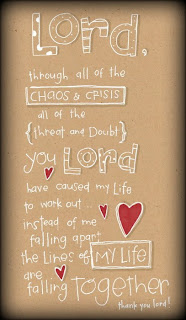 Lord,
through all of the
CHAOS & CRISIS
all of the
{threat and Doubt}
you Lord
have caused my Life
to work out ..
instead of me
falling apart
the Lines of MY LIFE
are
falling Together
thank you lord!